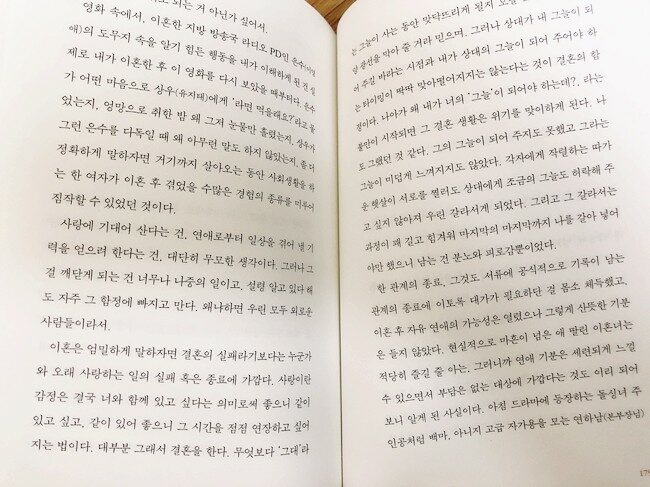 되는 거 아닌가 싶어서.
영화 속에서, 이혼한 지방 방송국 라디오 PD인 은수(이영
애)의 도무지 속을 알기 힘든 행동을 내가 이해하게 된 건 실
제로 내가 이혼한 후 이 영화를 다시 보았을 때부터다. 은수
가 어떤 마음으로 상우(유지태)에게 ‘라면 먹을래요?’라고 물
었는지, 엉망으로 취한 밤 왜 그저 눈물만 흘렸는지, 상우가
그런 은수를 다독일 때 왜 아무런 말도 하지 않았는지. 좀 더
정확하게 말하자면 거기까지 살아오는 동안 사회생활을 하
는 한 여자가 이혼 후 겪었을 수많은 경험의 종류를 미루어
짐작할 수 있었던 것이다.
사랑에 기대어 산다는 건, 연애로부터 일상을 겪어 낼 기
력을 얻으려 한다는 건, 대단히 무모한 생각이다. 그러나 그
걸 깨닫게 되는 건 너무나 나중의 일이고, 설령 알고 있다 해
도 자주 그 함정에 빠지고 만다. 왜냐하면 우린 모두 외로운
사람들이라서.
이혼은 엄밀하게 말하자면 결혼의 실패라기보다는 누군가
와 오래 사랑하는 일의 실패 혹은 종료에 가깝다. 사랑이란
감정은 결국 너와 함께 있고 싶다는 의미로써 좋으니 같이
있고 싶고, 같이 있어 좋으니 그 시간을 점점 연장하고 싶어
지는 법이다. 대부분 그래서 결혼을 한다. 무엇보다 ‘그대’라
는 그늘이 사는 동안 맞닥뜨리게 될지 모를
당 광선을 막아 줄 거라 믿으며. 그러나 상대가 내 그늘이 되
어 주길 바라는 시점과 내가 상대의 그늘이 되어 주어야 하
는 타이밍이 딱딱 맞아떨어지지는 않는다는 것이 결혼의 함
정이다. 나아가 왜 내가 너의 ‘그늘’이 되어야 하는데?, 라는
불만이 시작되면 그 결혼 생활은 위기를 맞이하게 된다. 나
도 그랬던 것 같다. 그의 그늘이 되어 주지도 못했고 그라는
그늘이 미덥게 느껴지지도 않았다. 각자에게 작렬하는 따가
운 햇살이 서로를 찔러도 상대에게 조금의 그늘도 허락해 주
고 싶지 않아져 우린 갈라서게 되었다. 그리고 그 갈라서는
과정이 꽤 길고 힘겨워 마지막의 마지막까지 나를 갈아 넣어
야만 했으니 남는 건 분노와 피로감뿐이었다.
한 관계의 종료, 그것도 서류에 공식적으로 기록이 남는
관계의 종료에 이토록 대가가 필요하단 걸 몸소 체득했고,
이혼 후 자유 연애의 가능성은 열렸으나 그렇게 산뜻한 기분
은 들지 않았다. 현실적으로 마흔이 넘은 애 딸린 이혼녀는
적당히 즐길 줄 아는, 그러니까 연애 기분은 세련되게 느낄
수 있으면서 부담은 없는 대상에 가깝다는 것도 이리 되어
보니 알게 된 사실이다. 아침 드라마에 등장하는 돌싱녀 주
인공처럼 백마, 아니지 고급 자가용을 모는 연하남(본부장님)